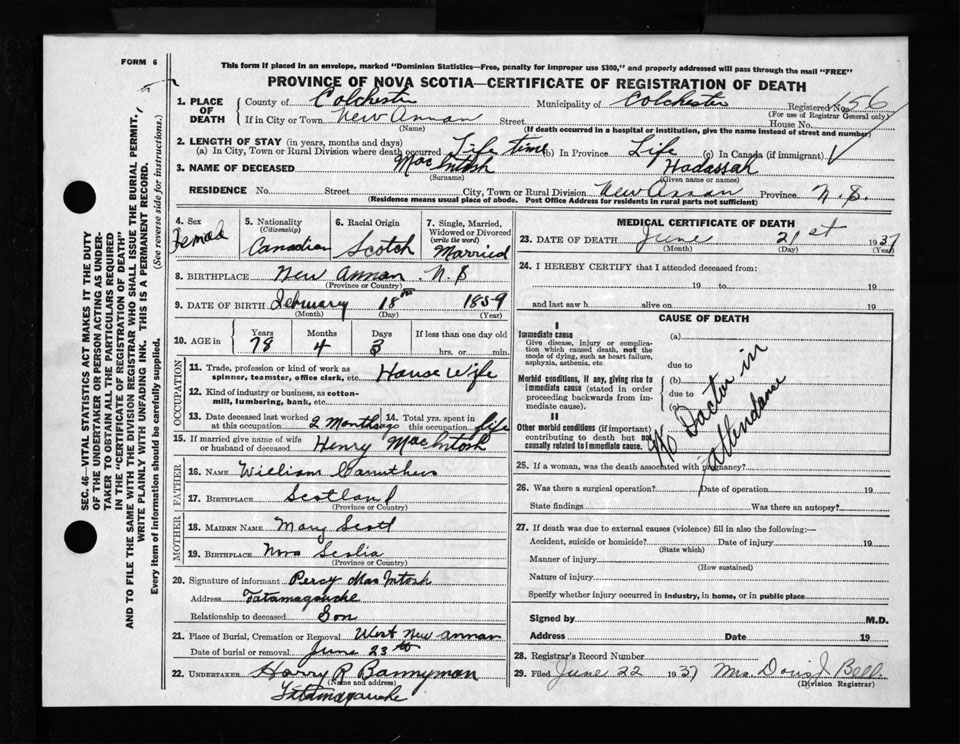 FORM 6
This form if placed in an envelope, marked "Dominion Statistics—Free, penalty for improper use $300," and properly addressed will pass through the mail "FREE"
PROVINCE OF NOVA SCOTIA—CERTIFICATE OF REGISTRATION OF DEATH
1. PLACE OF DEATH County of Colchester Municipality of Colchester Registered No. 156
(For use of Registrar General only)
If in City or Town New Annan Street House No.
(Name) (If death occurred in a hospital or institution, give the name instead of street and number)
2. LENGTH OF STAY (in years, months and days)
(a) In City, Town or Rural Division where death occurred Life time (b) In Province Life (c) In Canada (if immigrant)
3. NAME OF DECEASED MacIntosh Hadassah
(Surname) (Given name or names)
RESIDENCE No. Street City, Town or Rural Division New Annan Province N.S.
(Residence means usual place of abode. Post Office Address for residents in rural parts not sufficient)
4. Sex Female
5. Nationality (Citizenship) Canadian
6. Racial Origin Scotch
7. Single, Married, Widowed or Divorced (write the word) Married
8. BIRTHPLACE New Annan N.S
(Province or Country)
9. DATE OF BIRTH February 18th 1859
(Month) (Day) (Year)
10. AGE in Years 78 Months 4 Days 3 If less than one day old hrs. or min.
OCCUPATION
11. Trade, profession or kind of work as spinner, teamster, office clerk, etc. House Wife
12. Kind of industry or business, as cotton-mill, lumbering, bank, etc.
13. Date deceased last worked at this occupation 2 Months ago 14. Total yrs. spent in this occupation life
15. If married give name of wife or husband of deceased Henry MacIntosh
FATHER
16. NAME William Carruthers
17. BIRTHPLACE Scotland
(Province or Country)
MOTHER
18. MAIDEN NAME Mary Scott
19. BIRTHPLACE Nova Scotia
(Province or Country)
20. Signature of informant Percy MacIntosh
Address Tatamagouche
Relationship to deceased Son
21. Place of Burial, Cremation or Removal West New Annan
Date of burial or removal June 23rd
22. UNDERTAKER Harry R Bannyman
(Name and address)
Tatamagouche
MEDICAL CERTIFICATE OF DEATH
23. DATE OF DEATH June 21st 1937
(Month) (Day) (Year)
24. I HEREBY CERTIFY that I attended deceased from:
19 to 19
and last saw h alive on 19
CAUSE OF DEATH
I
Immediate cause (a)
Give disease, injury or complication which caused death, not the mode of dying, such as heart failure, asphyxia, asthenia, etc
due to
Morbid conditions, if any, giving rise to immediate cause (stated in order proceeding backwards from immediate cause).
(b)
due to
(c)
II
Other morbid conditions (if important) contributing to death but not causally related to immediate cause.
No Doctor in
attendance
25. If a woman, was the death associated with pregnancy?
26. Was there a surgical operation? Date of operation 19
State findings Was there an autopsy?
27. If death was due to external causes (violence) fill in also the following:—
Accident, suicide or homicide? Date of injury 19
(State which)
Manner of injury
(How sustained)
Nature of injury
Specify whether injury occurred in industry, in home, or in public place
Signed by M.D.
Address Date 19
28. Registrar's Record Number
29. Filed June 22 1937 Mrs. Doris J Bell
(Division Registrar)
SEC. 46—VITAL STATISTICS ACT MAKES IT THE DUTY
OF THE UNDERTAKER OR PERSON ACTING AS UNDER-
TAKER TO OBTAIN ALL THE PARTICULARS REQUIRED
IN THE "CERTIFICATE OF REGISTRATION OF DEATH"
AND TO FILE THE SAME WITH THE DIVISION REGISTRAR WHO SHALL ISSUE THE BURIAL PERMIT.
WRITE PLAINLY WITH UNFADING INK. THIS IS A PERMANENT RECORD.
Every item of information should be carefully supplied. (See reverse side for instructions.)